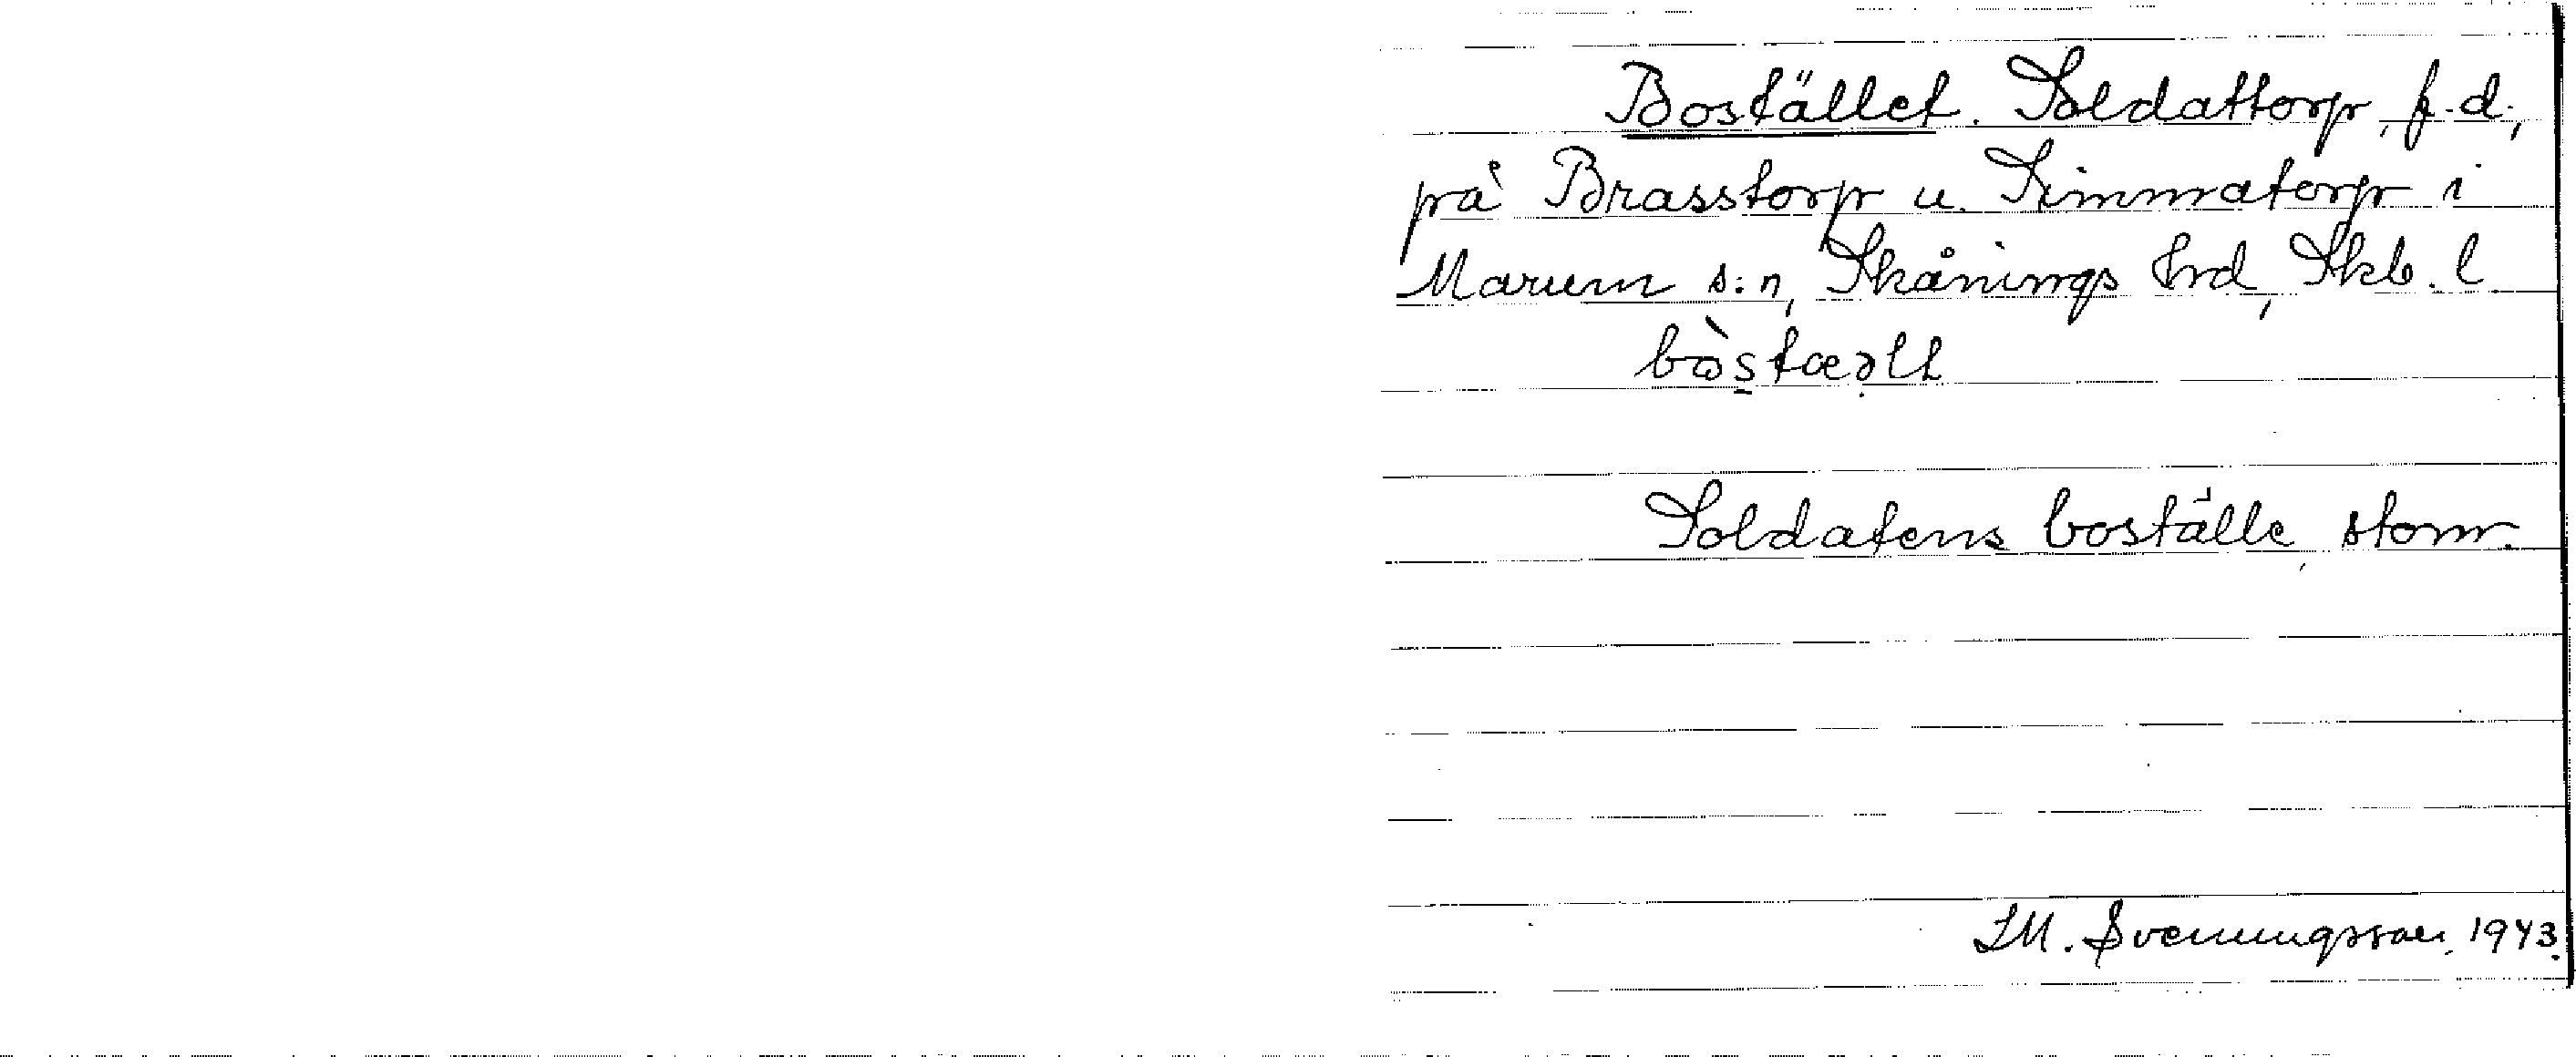 Bostället. Soldattorp, f.d.,
på Brasstorp u. Simmatorp i
Marum s:n, Skånings hd, Skb. l.
bòstæəlt
Soldatens boställe, stom.
S.M. Svenningsson, 1943.